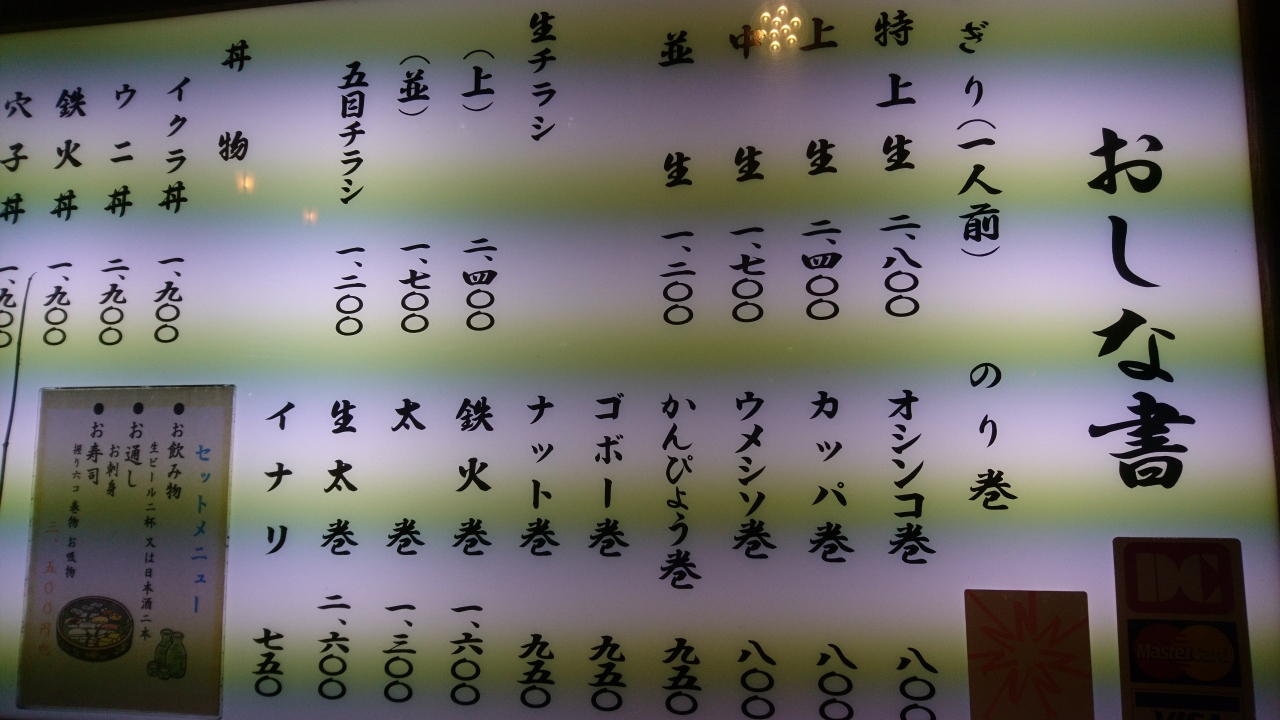 おしな書
ぎり(一人前)
特上生 二、八〇〇
上生 二、四〇〇
中生 一、七〇〇
並生 一、二〇〇
生チラシ
(上) 二、四〇〇
(並) 一、七〇〇
五目チラシ 一、二〇〇
丼物
イクラ丼 一、九〇〇
ウニ丼 二、九〇〇
鉄火丼 一、九〇〇
穴子丼 一、九〇〇
のり巻
オシンコ巻 八〇〇
カッパ巻 八〇〇
ウメシソ巻 八〇〇
かんぴょう巻 九五〇
ゴボー巻 九五〇
ナット巻 九五〇
鉄火巻 一、六〇〇
太巻 一、三〇〇
生太巻 二、六〇〇
イナリ 七五〇
セットメニュー
●お飲み物
生ビール二杯 又は日本酒二本
●お通し
お刺身
●お寿司
握り六コ 巻物 お吸物
三、五〇〇円
DC
MasterCard